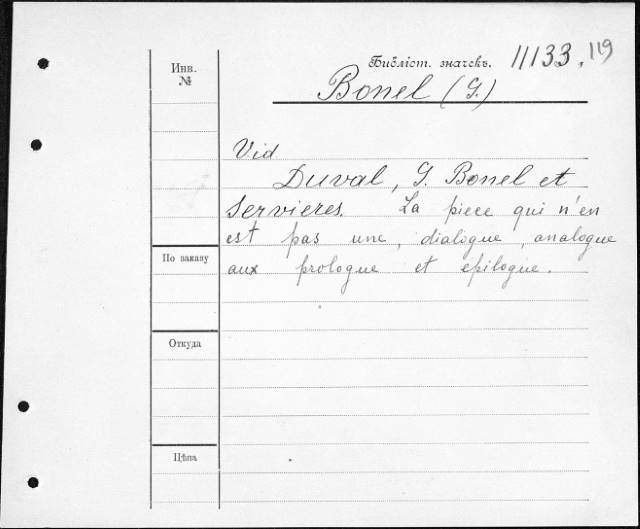 Инв.
№
Библіот. значекъ. 11133, 119
Bonel (G.)
Vid
Duval, G. Bonel et
Servieres. La piece qui n'en
est pas une, dialogue, analogue
aux prologue et epilogue.
По заказу
Откуда
Цѣна